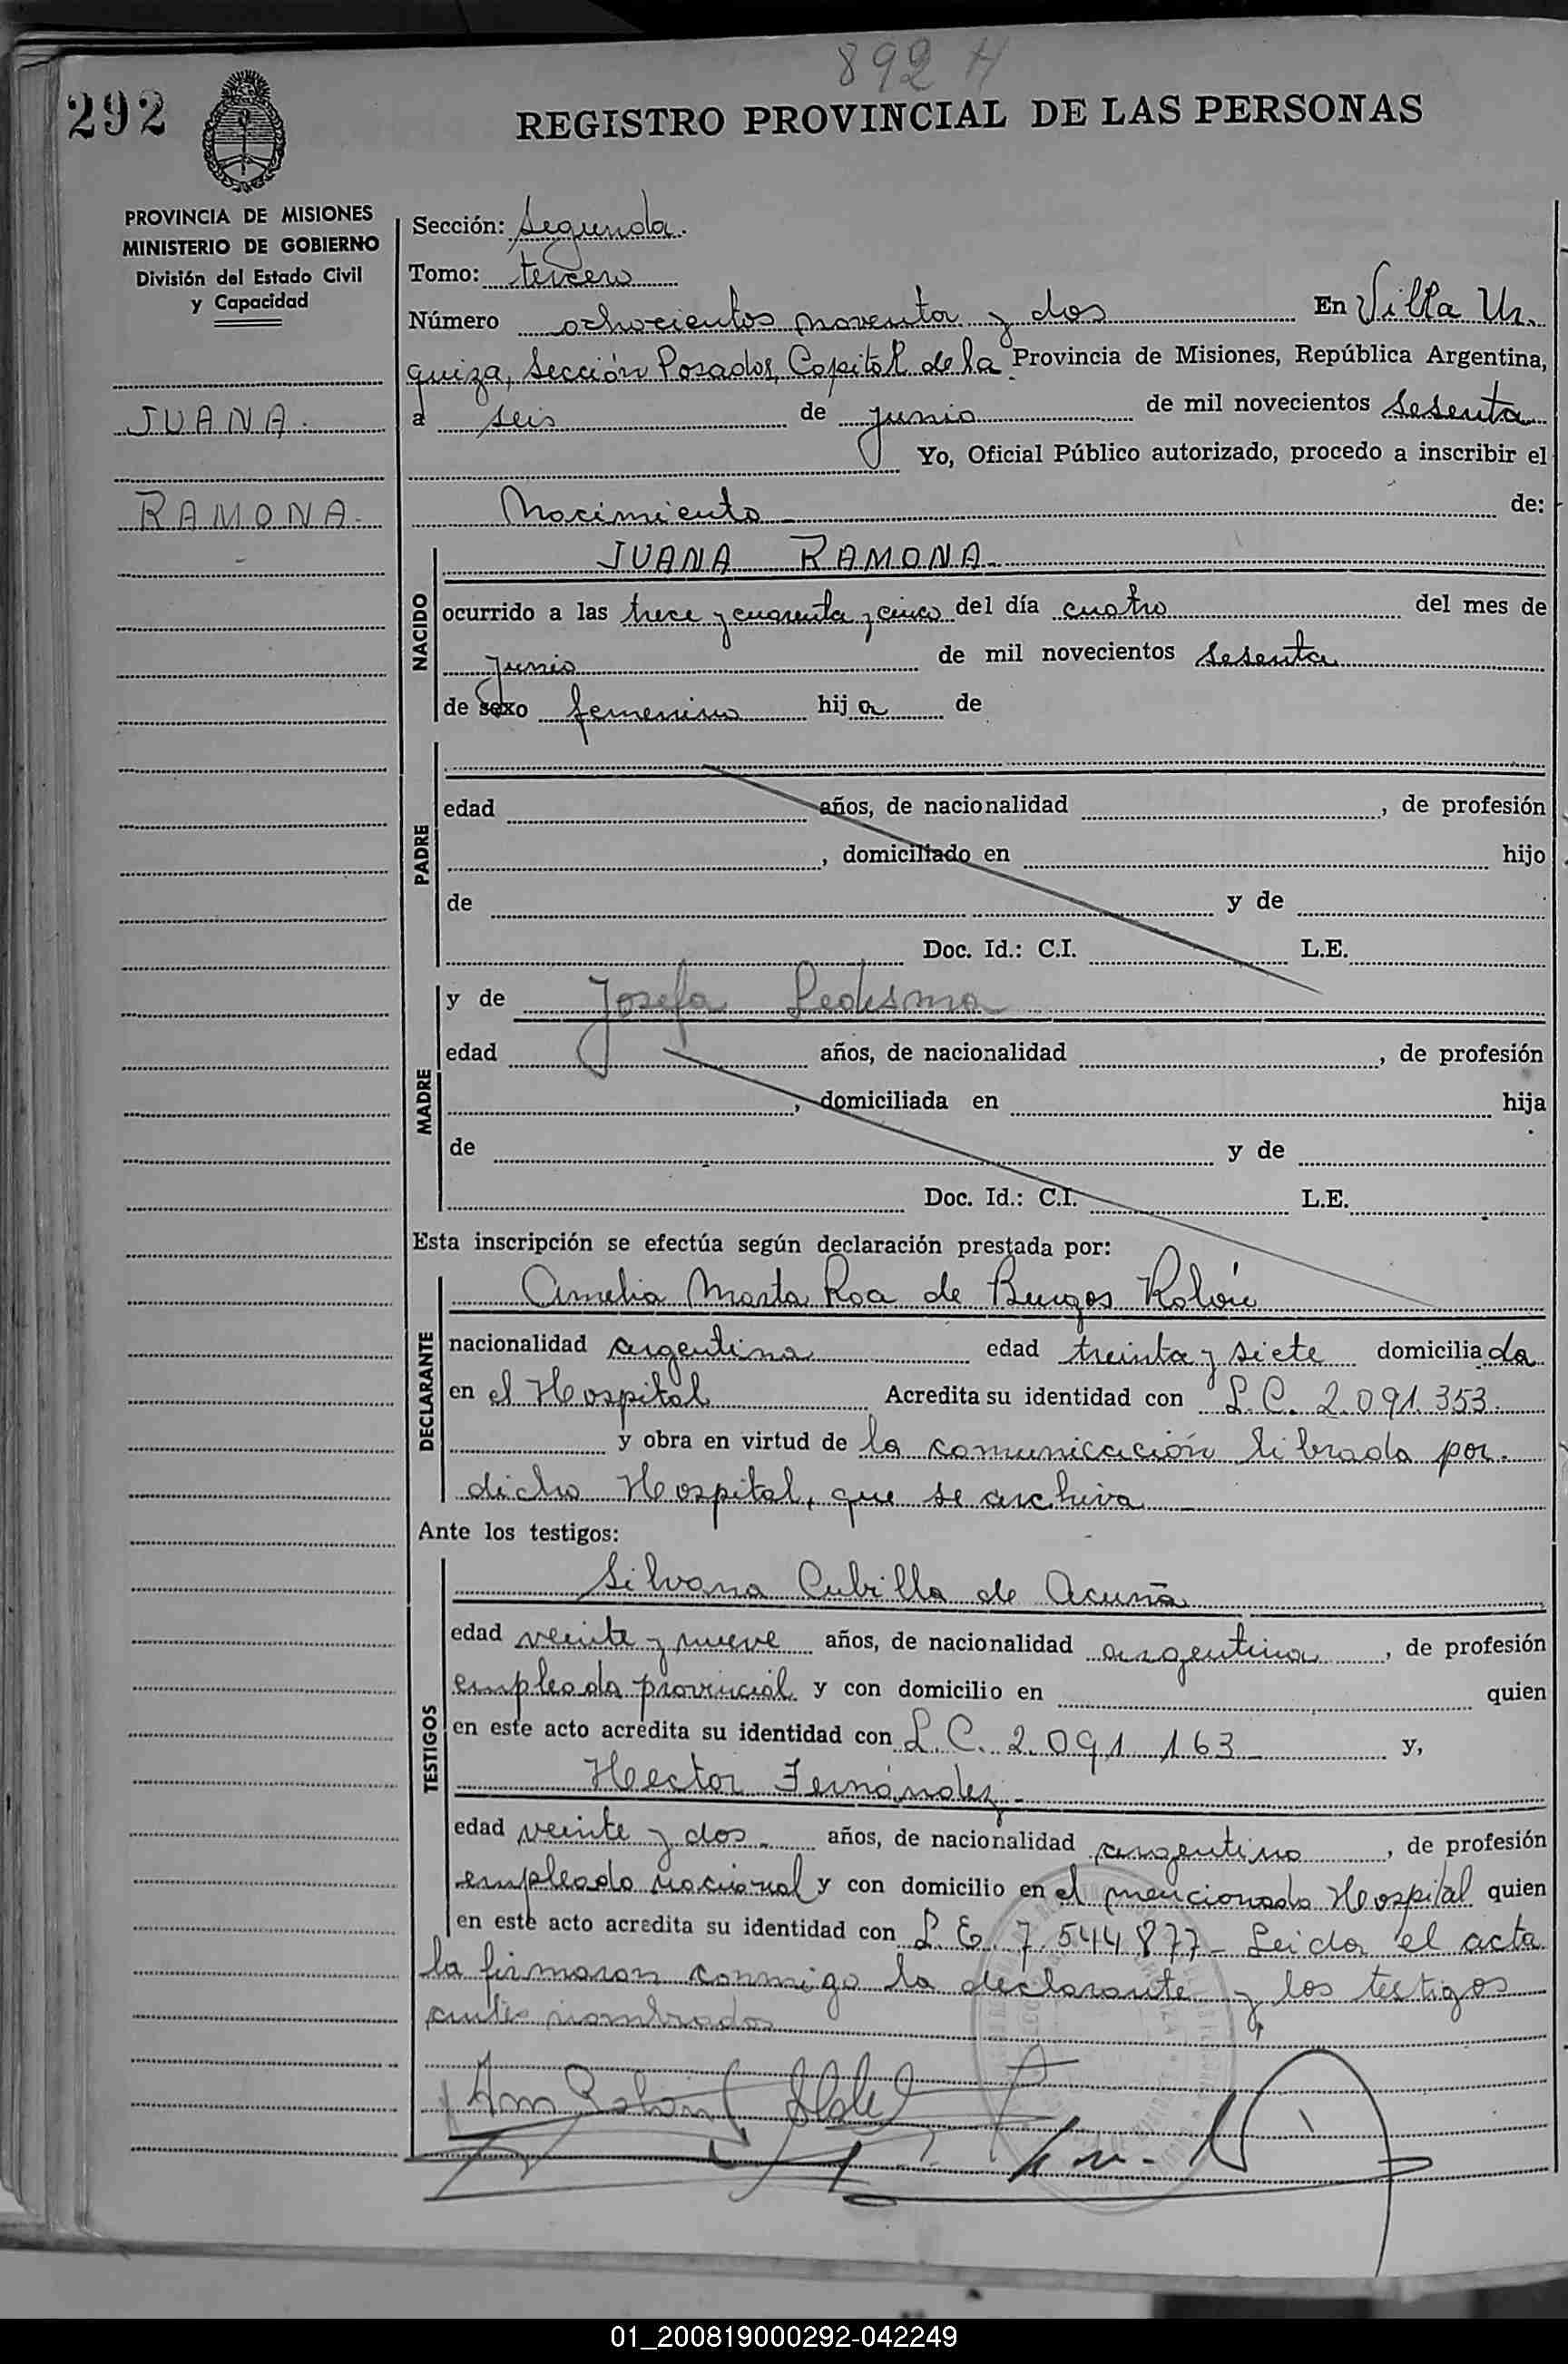 892 H
292
REGISTRO PROVINCIAL DE LAS PERSONAS
PROVINCIA DE MISIONES
MINISTERIO DE GOBIERNO
División del Estado Civil
y Capacidad
JUANA.
RAMONA.
Sección: Segunda.
Tomo: tercero
Número ochocientos noventa y dos En Villa Ur.
quiza, Sección Posadas, Capital de la Provincia de Misiones, República Argentina,
a seis de junio de mil novecientos sesenta
Yo, Oficial Público autorizado, procedo a inscribir el
Nacimiento de:
NACIDO
JUANA RAMONA.
ocurrido a las trece y cuarenta y cinco del día cuatro del mes de
Junio de mil novecientos sesenta
de sexo femenino hija de
PADRE
edad años, de nacionalidad , de profesión
, domiciliado en hijo
de y de
Doc. Id.: C.I. L.E.
MADRE
y de Josefa Ledesma
edad años, de nacionalidad , de profesión
, domiciliada en hija
de y de
Doc. Id.: C.I. L.E.
Esta inscripción se efectúa según declaración prestada por:
DECLARANTE
Amelia Marta Roa de Burgos Rolón
nacionalidad argentina edad treinta y siete domiciliada
en el Hospital Acredita su identidad con L.C. 2.091.353
y obra en virtud de la comunicación librada por
dicho Hospital, que se archiva
Ante los testigos:
TESTIGOS
Silvana Cubilla de Acuña
edad veinte y nueve años, de nacionalidad argentina , de profesión
empleada provincial y con domicilio en quien
en este acto acredita su identidad con L.C. 2.091.163 y,
Hector Fernández.
edad veinte y dos años, de nacionalidad argentino , de profesión
empleado nacional y con domicilio en el mencionado Hospital quien
en este acto acredita su identidad con L.E. 7.544.877 - Leida el acta
la firmaron conmigo la declarante y los testigos
antes nombrados
01_200819000292-042249